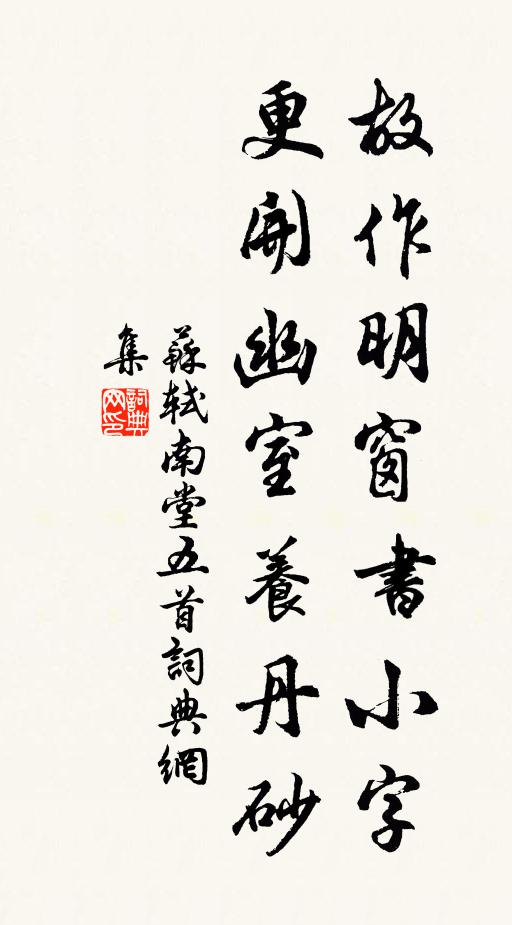 故作明窗書小字
更開幽室養丹砂
蘇軾南堂五首詞典網
集
詞典網印